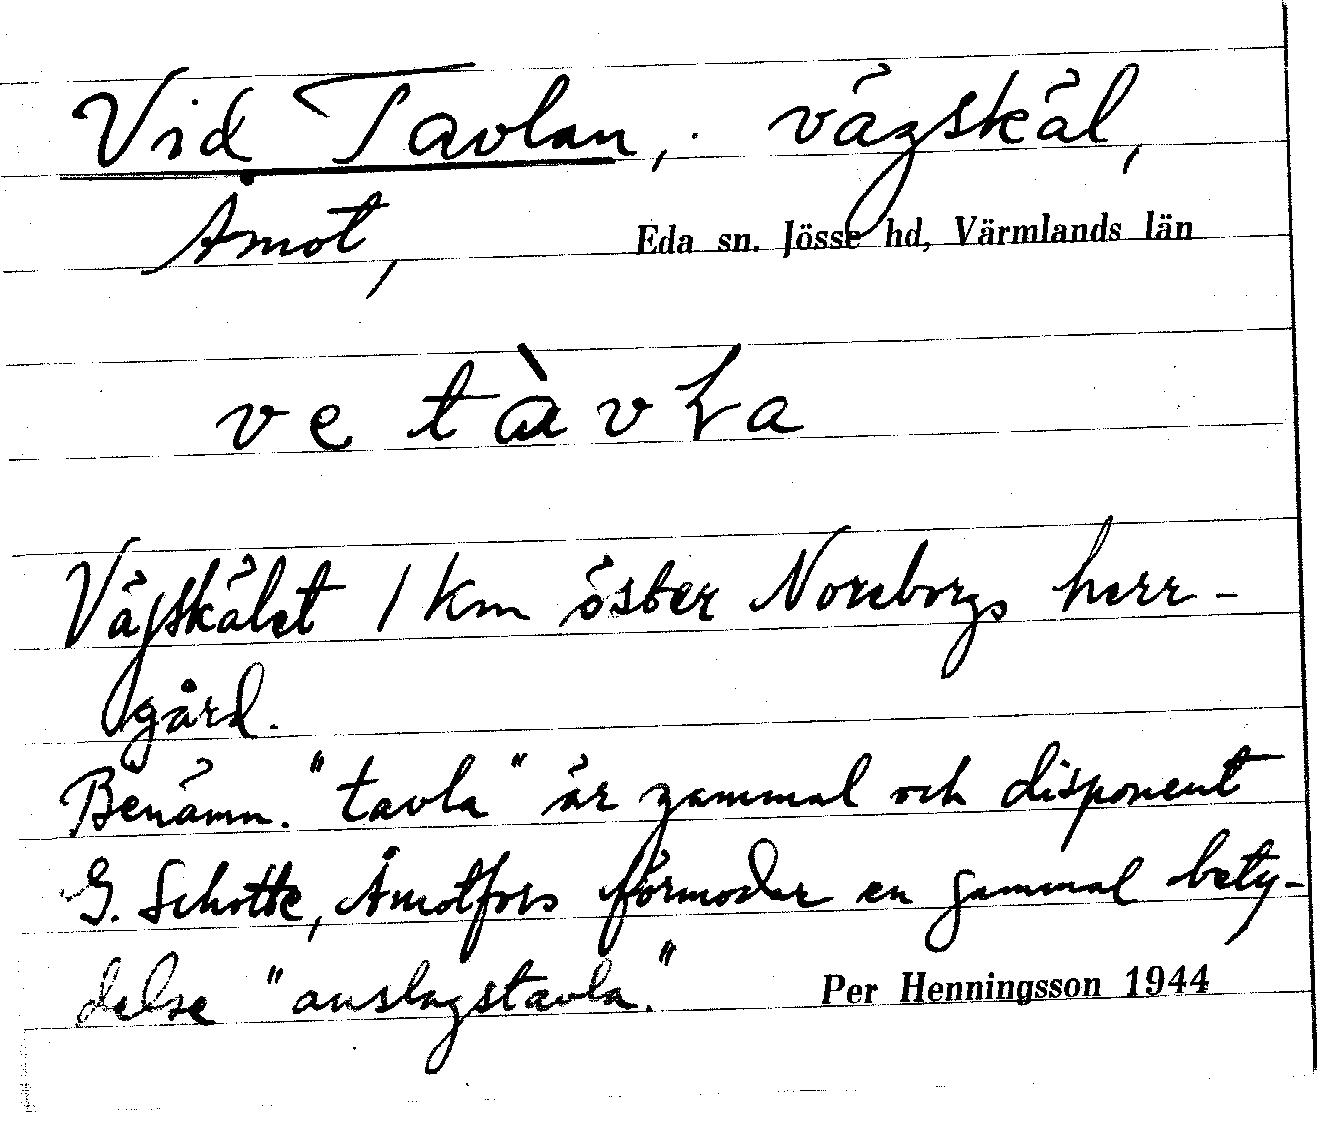 Vid Tavlan, vägskäl,
Åmot, Eda sn. Jösse hd, Värmlands län
ve tàvɫa
Vägskälet 1 km öster Noreborgs herr-
gård.
Benämn. "tavla" är gammal och disponent
G. Schotte, Åmotfors förmodar en gammal bety-
delse "anslagstavla."
Per Henningsson 1944